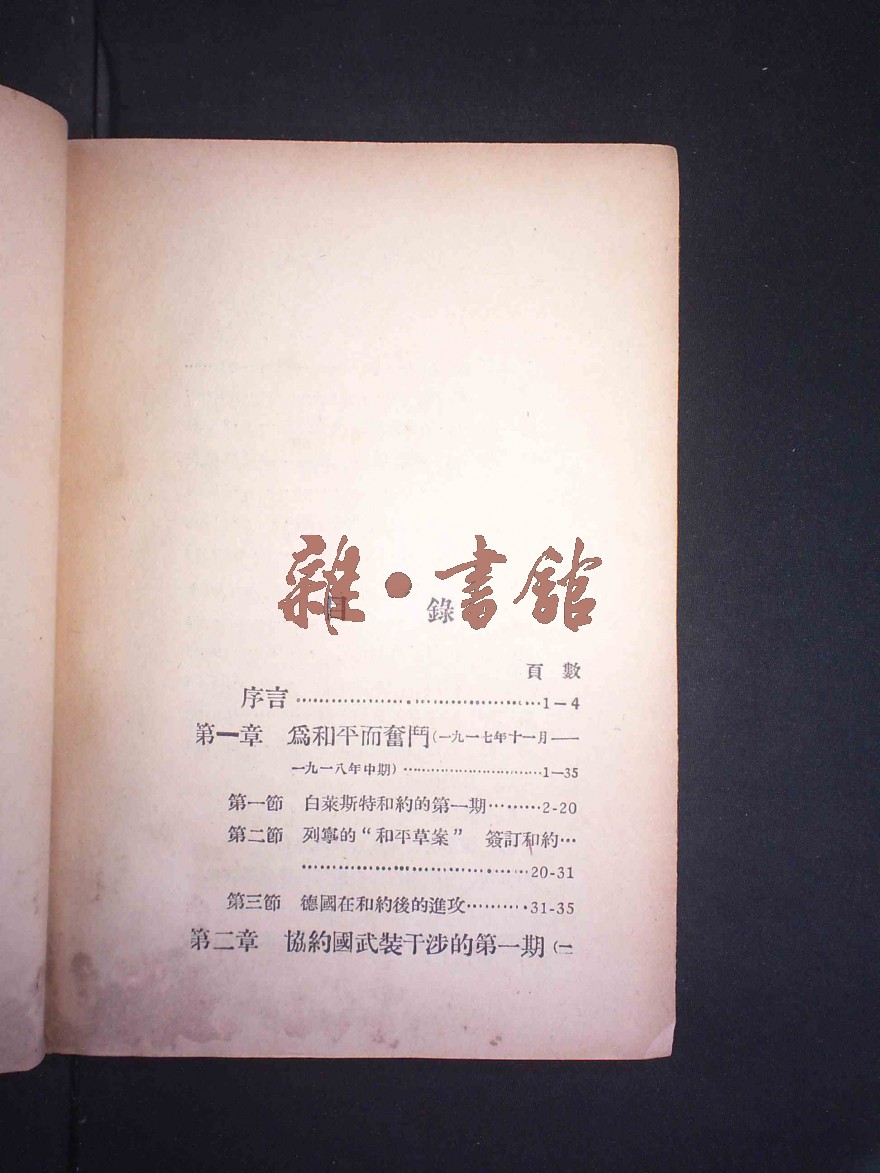 雜·書館
目 錄
頁 數
序言……………………………………1－4
第一章 爲和平而奮鬥(一九一七年十一月——
一九一八年中期)…………………………1—35
第一節 白萊斯特和約的第一期………2-20
第二節 列寧的“和平草案” 簽訂和約…
……………………………………20-31
第三節 德國在和約後的進攻…………31-35
第二章 協約國武裝干涉的第一期(一